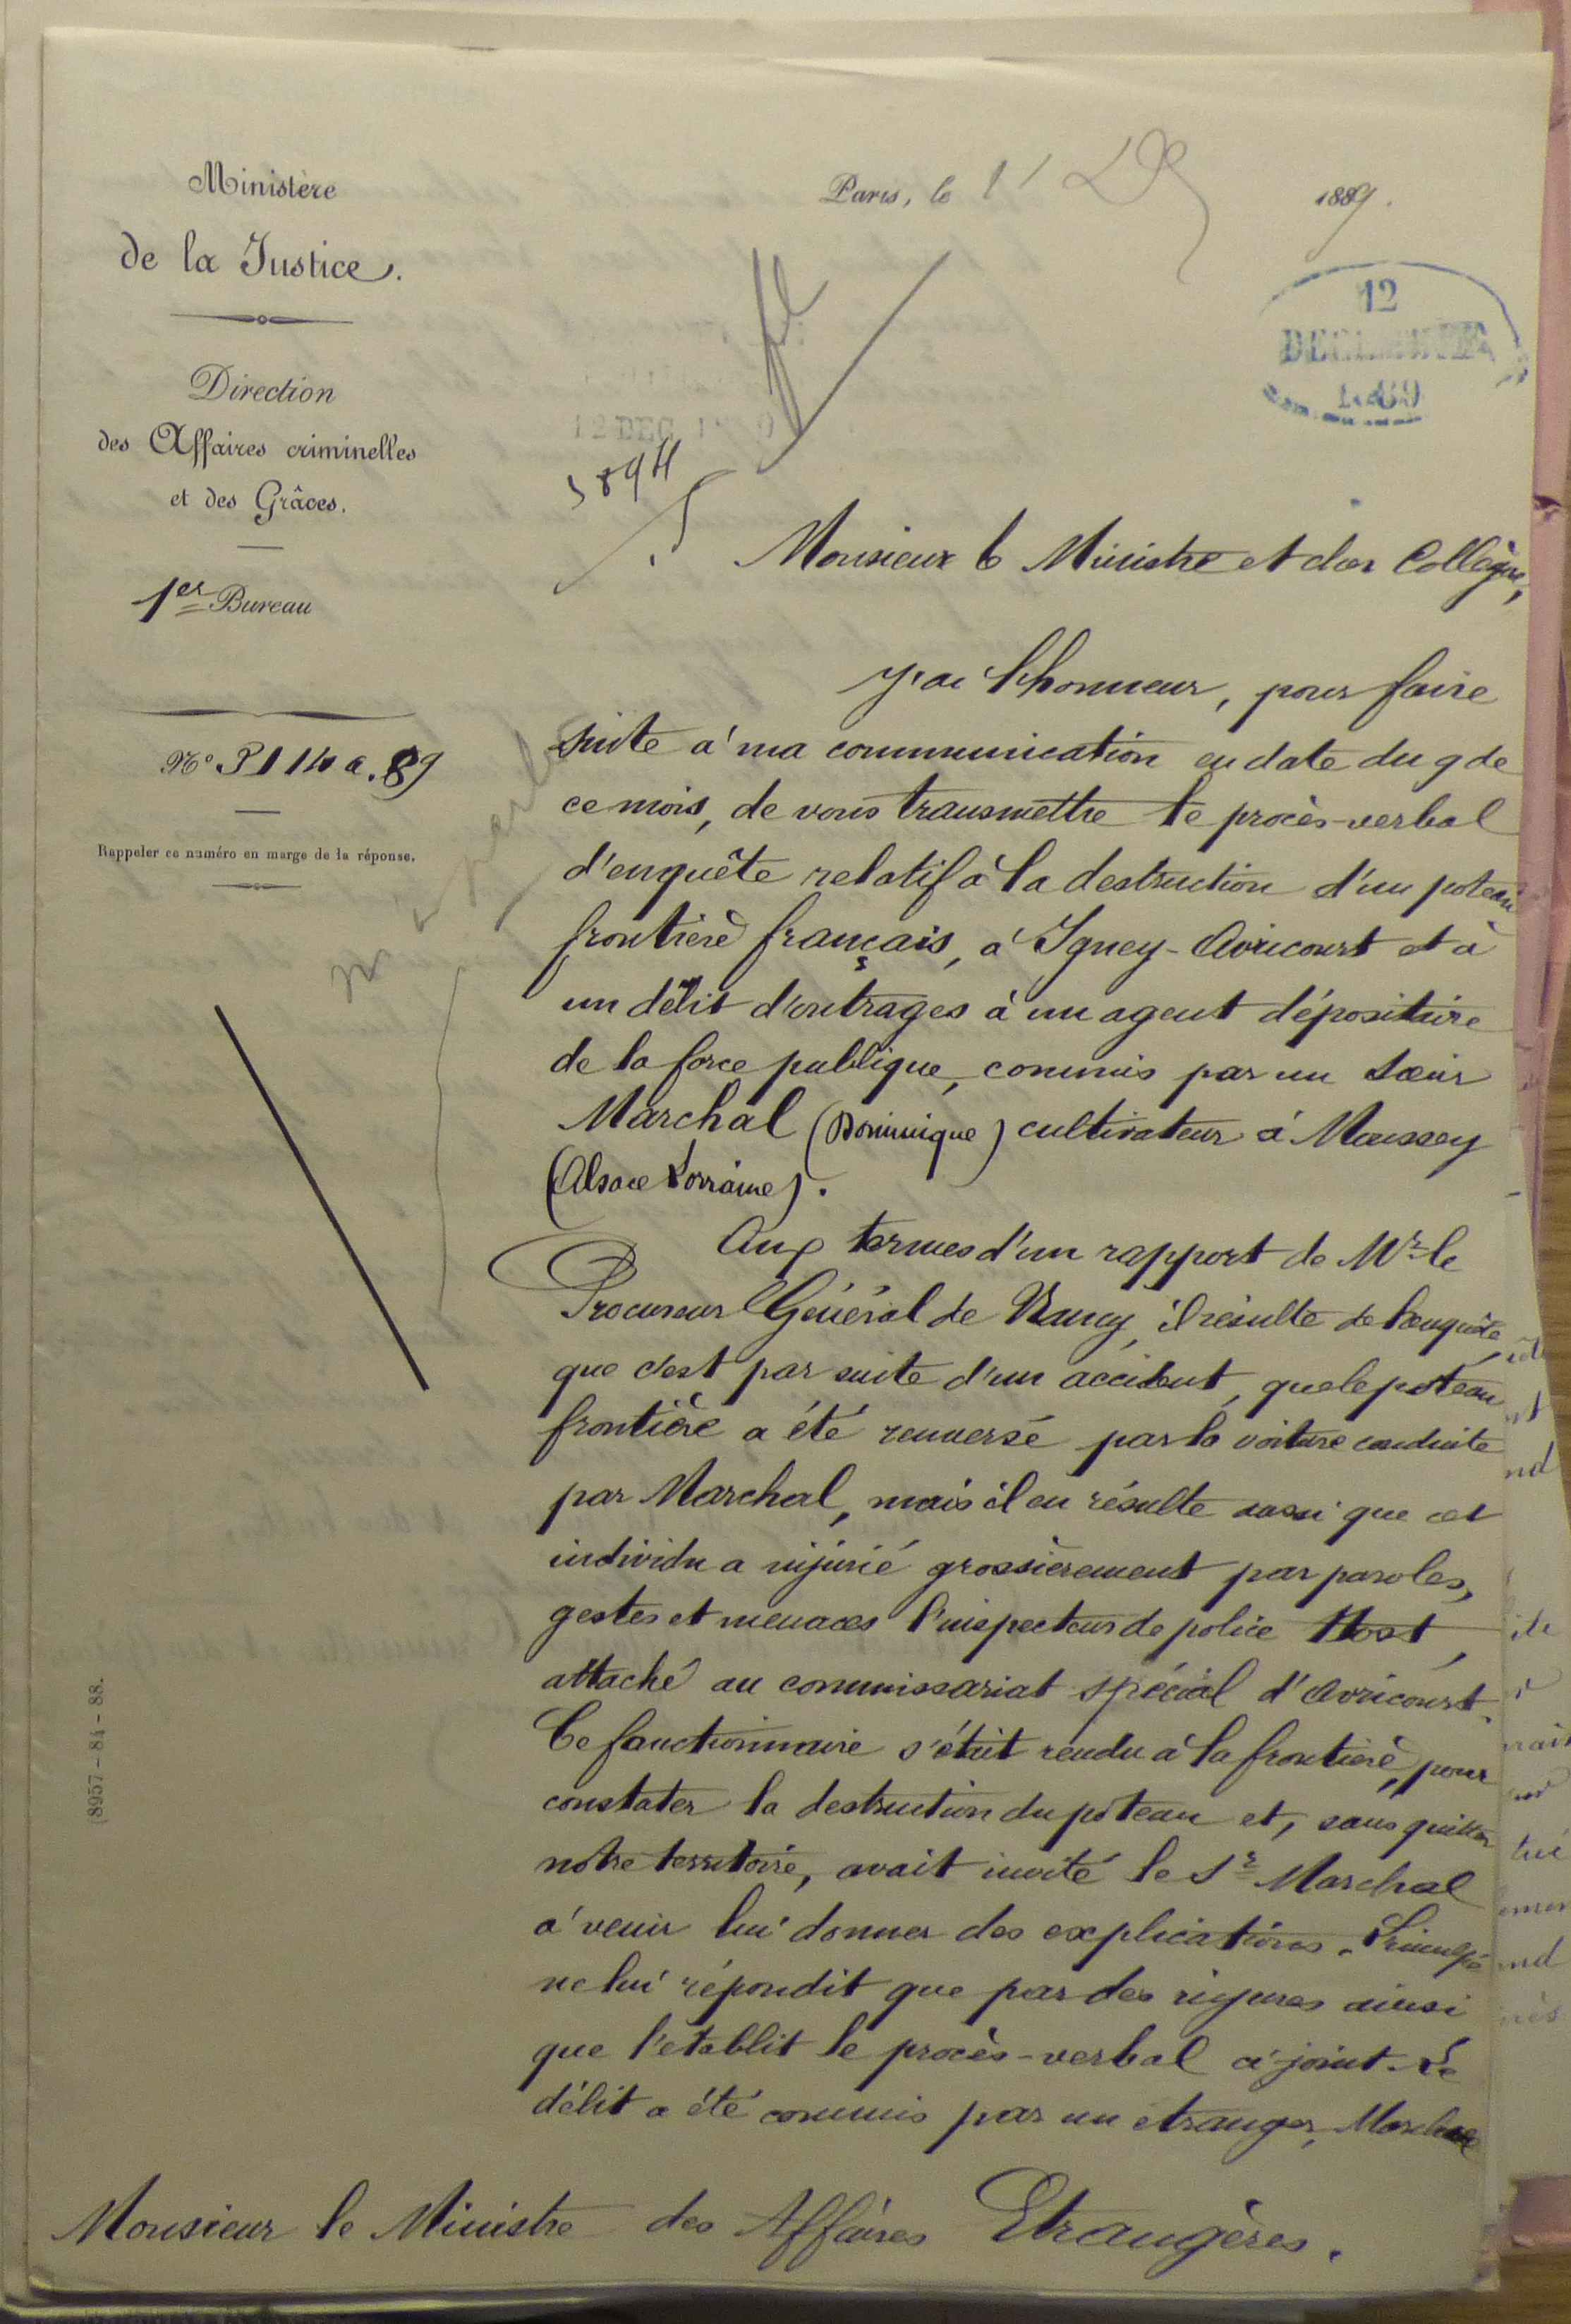 Ministère
de la Justice.
Direction
des Affaires criminelles
et des Grâces.
1er Bureau
No 3114 a. 89
Rappeler ce numéro en marge de la réponse.
Paris, le 11 1889.
12
DECEMBRE
1889
12 DEC 1889
5894
Monsieur le Ministre et cher Collègue,
J'ai l'honneur, pour faire
suite a' ma communication en date du 9 de
ce mois, de vous transmettre le procès-verbal
d'enquête relatif à la destruction d'un poteau
frontière français, à Igney-Avricourt et à
un délit d'outrages à un agent dépositaire
de la force publique, commis par un sieur
Marchal (Dominique) cultivateur à Moussey
(Alsace Lorraine).
Aux termes d'un rapport de Mr le
Procureur Général de Nancy, il résulte de l'enquête
que c'est par suite d'un accident, que le poteau
frontière a été renversé par la voiture conduite
par Marchal, mais il en résulte aussi que cet
individu a injurié grossièrement par paroles,
gestes et menaces l'inspecteur de police Host,
attaché au commissariat spécial d'Avricourt.
Ce fonctionnaire s'était rendu à la frontière, pour
constater la destruction du poteau et, sans quitter
notre territoire, avait invité le Sr Marchal
à venir lui donner des explications. L'inculpé
ne lui répondit que par des injures ainsi
que l'etablit le procès-verbal ci-joint. Le
délit a été commis par un étranger, Marchal
Monsieur le Ministre des Affaires Etrangères.
(8957-84-88.